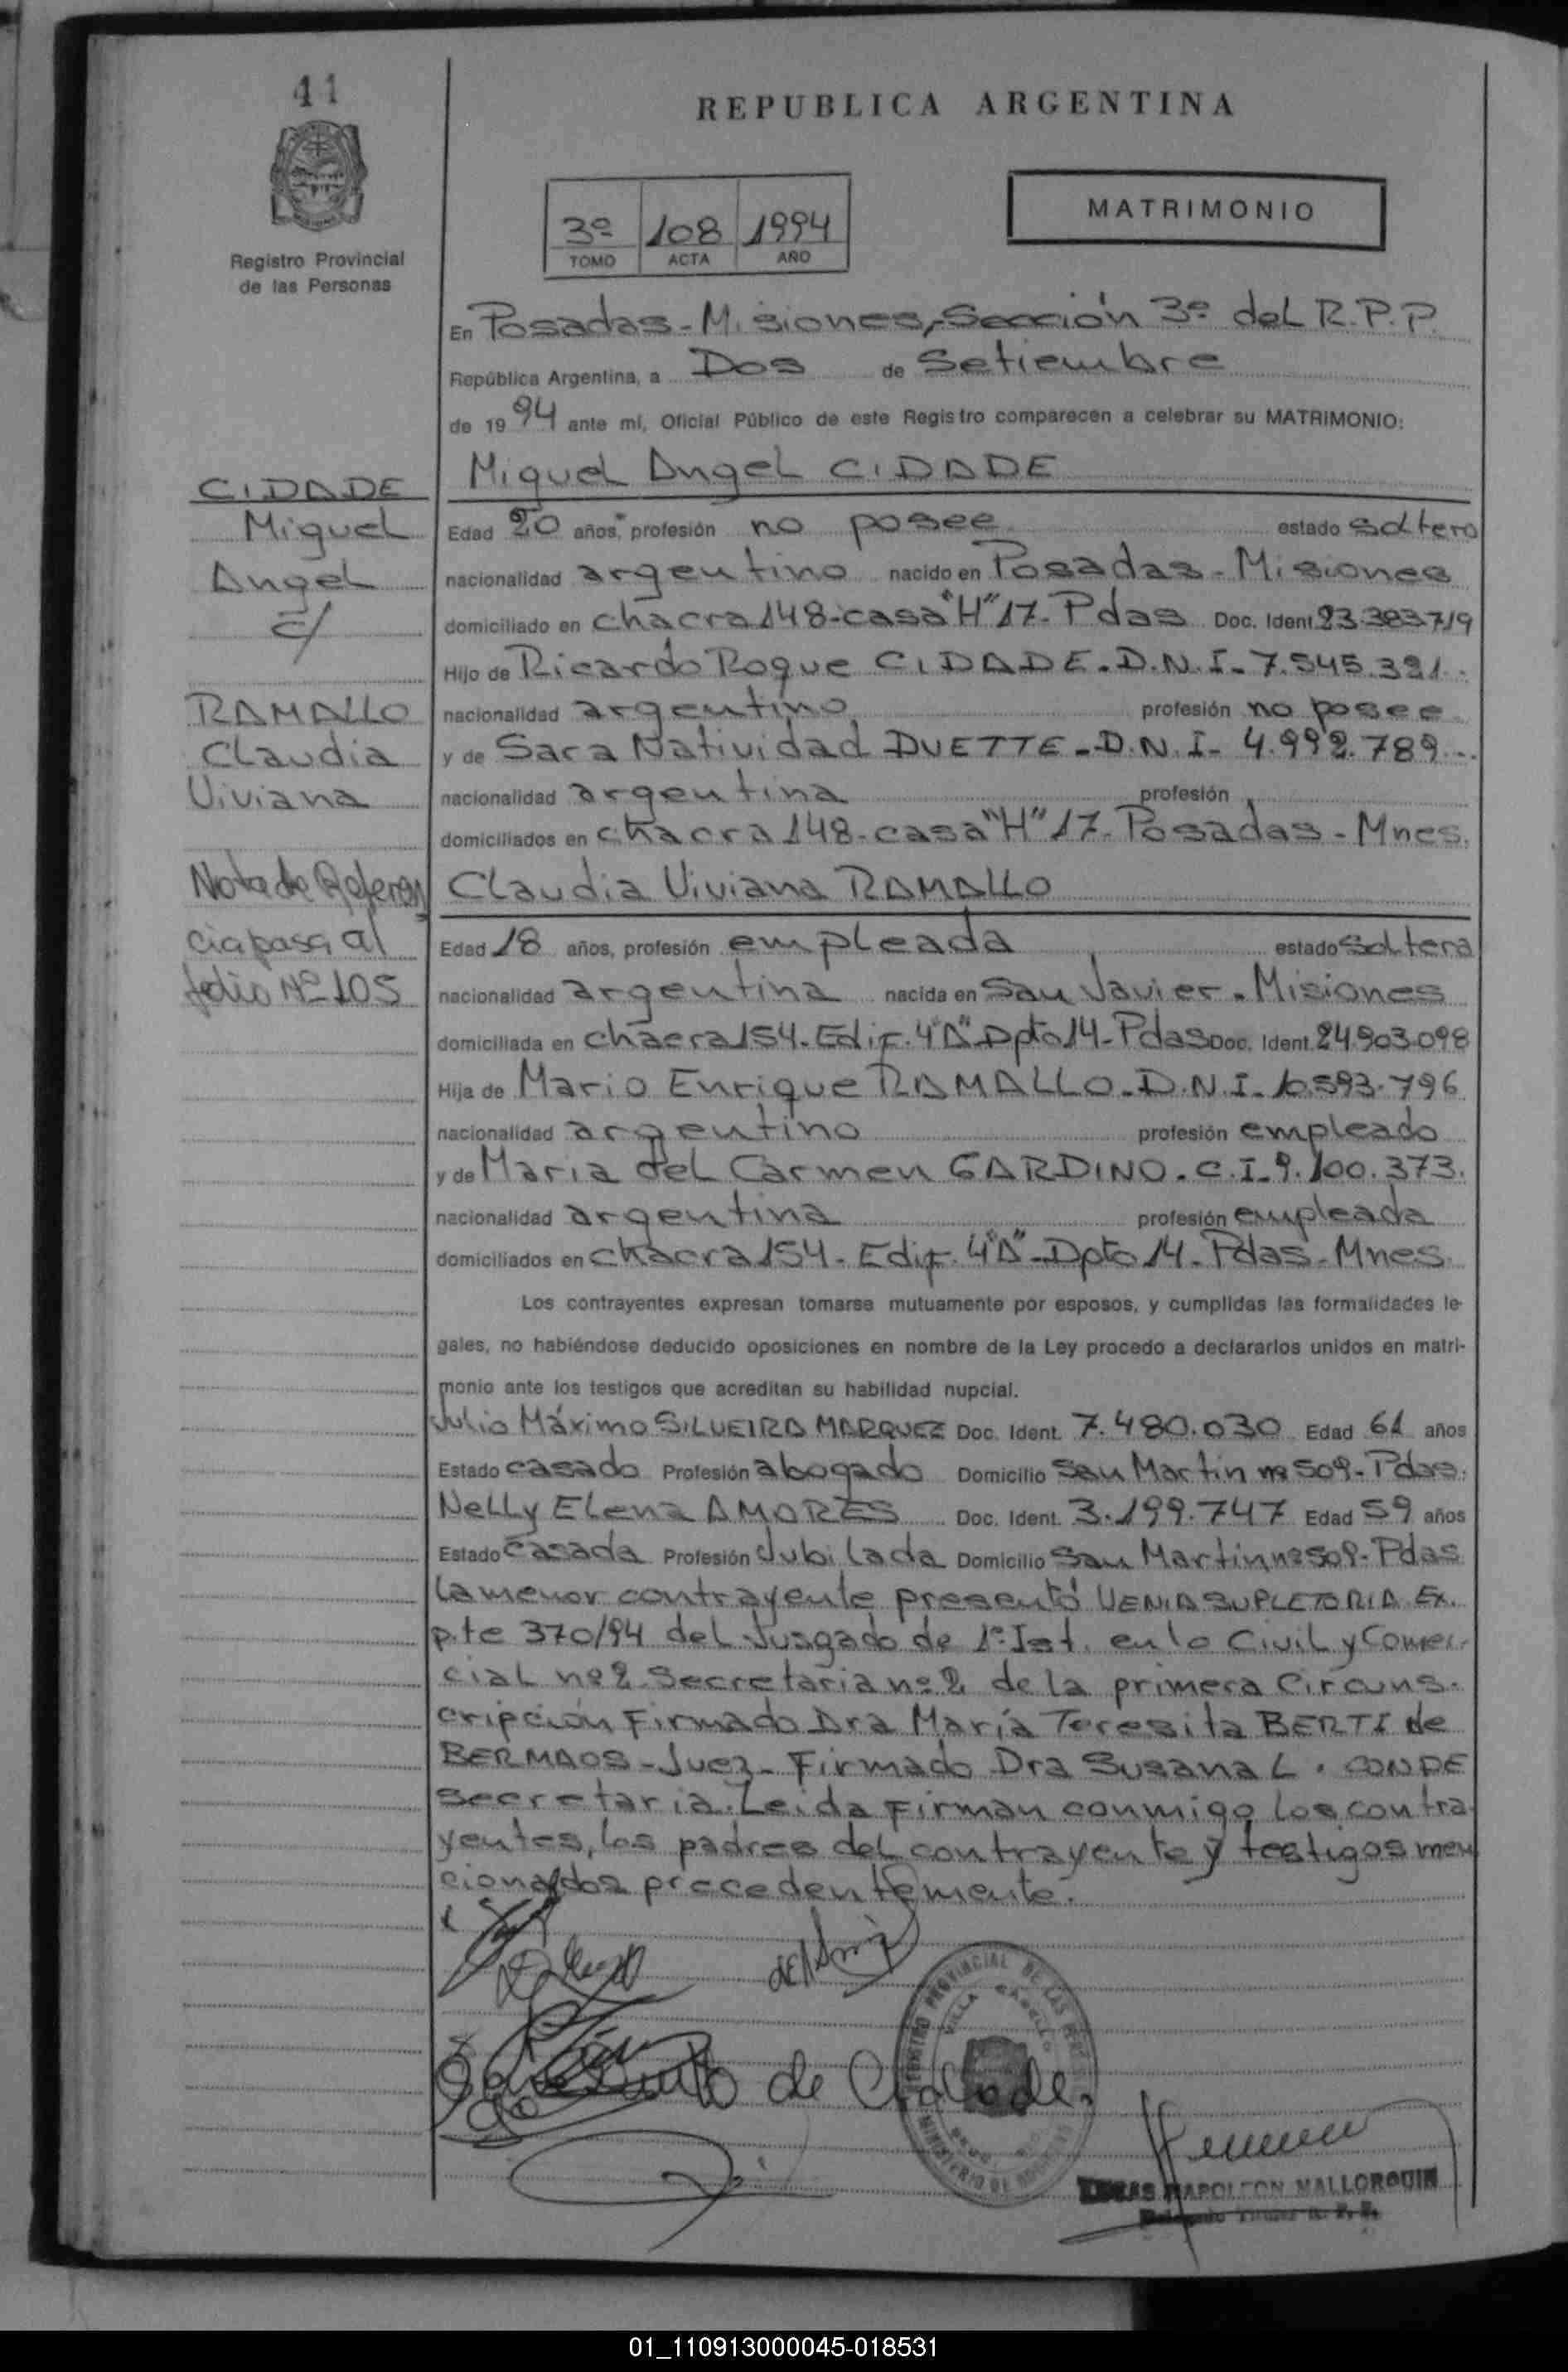 41
REPUBLICA ARGENTINA
Registro Provincial
de las Personas
3º 108 1994
TOMO ACTA AÑO
MATRIMONIO
En Posadas - Misiones, - Sección 3º del R.P.P.
República Argentina, a Dos de Setiembre
de 1994 ante mí, Oficial Público de este Registro comparecen a celebrar su MATRIMONIO:
Miguel Angel CIDADE
CIDADE
Miguel
Angel
c/
RAMALLO
Claudia
Viviana
Nota de Referen
cia pasa al
folio Nº 105
Edad 20 años, profesión no posee estado soltero
nacionalidad argentino nacido en Posadas - Misiones
domiciliado en chacra 148-casa "H" 17- Pdas Doc. Ident. 23.383.719
Hijo de Ricardo Roque CIDADE - D.N.I - 7.545.391.
nacionalidad argentino profesión no posee
y de Sara Natividad DUETTE - D.N.I - 4.992.789 -.
nacionalidad argentina profesión
domiciliados en chacra 148- casa "H" 17- Posadas - Mnes.
Claudia Viviana RAMALLO
Edad 18 años, profesión empleada estado soltera
nacionalidad argentina nacida en San Javier - Misiones
domiciliada en chacra 154- Edif. 4 "A" - Dpto 14- Pdas Doc. Ident. 24.903.098
Hija de Mario Enrique RAMALLO - D.N.I - 10.593.796
nacionalidad argentino profesión empleado
y de Maria del Carmen GARDINO - C.I - 9.100.373.
nacionalidad argentina profesión empleada
domiciliados en chacra 154 - Edif. 4 "A" - Dpto 14 - Pdas - Mnes.
Los contrayentes expresan tomarse mutuamente por esposos, y cumplidas las formalidades le-
gales, no habiéndose deducido oposiciones en nombre de la Ley procedo a declararlos unidos en matri-
monio ante los testigos que acreditan su habilidad nupcial.
Julio Máximo SILVEIRA MARQUEZ Doc. Ident. 7.480.030 Edad 61 años
Estado casado Profesión abogado Domicilio San Martin nº 509- Pdas.
Nelly Elena AMORES Doc. Ident. 3.199.747 Edad 59 años
Estado casada Profesión Jubilada Domicilio San Martin nº 509- Pdas
La menor contrayente presentó VENIA SUPLETORIA Ex.
p.te 370/94 del Jusgado de 1º Ist. en lo Civil y Comer-
cial nº 2 Secretaria nº 2 de la primera Circuns-
cripción Firmado Dra María Teresita BERTI de
BERMAOS - Juez - Firmado Dra Susana L. CONDE
secretaria. Leida Firman conmigo los contra-
yentes, los padres del contrayente y testigos men
cionados precedentemente.
de Cidade.
REGISTRO PROVINCIAL DE LAS
VILLA CABELLO
MINISTERIO DE
NAPOLEON MALLORQUIN
01_110913000045-018531